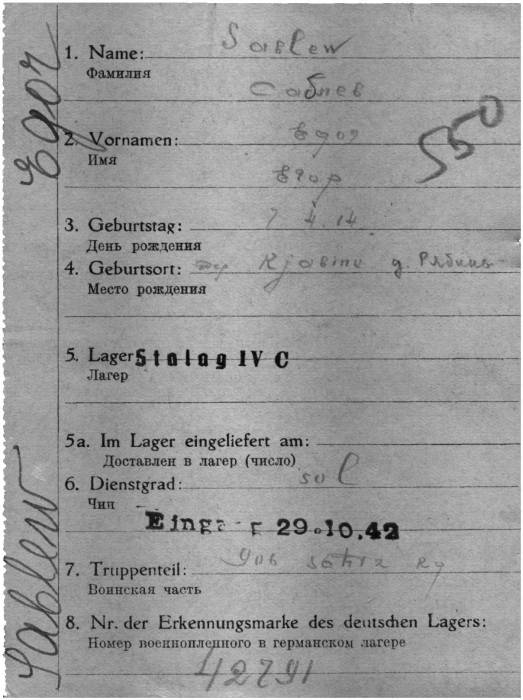 Egor
Sablew
1. Name: Sablew
Фамилия
Саблев
2. Vornamen: Egor
Имя
Егор
550
3. Geburtstag: 7 4.14.
День рождения
4. Geburtsort: Rjabini д. Рябины
Место рождения
5. Lager Stalag IV C
Лагер
5a. Im Lager eingeliefert am:
Доставлен в лагер (число)
6. Dienstgrad: sol
Чин
Eingang 29.10.42
7. Truppenteil:
Воинская часть
8. Nr. der Erkennungsmarke des deutschen Lagers:
Номер военнопленного в германском лагере
42791